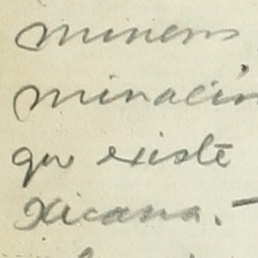 minero
minación
que existe
xicana.-